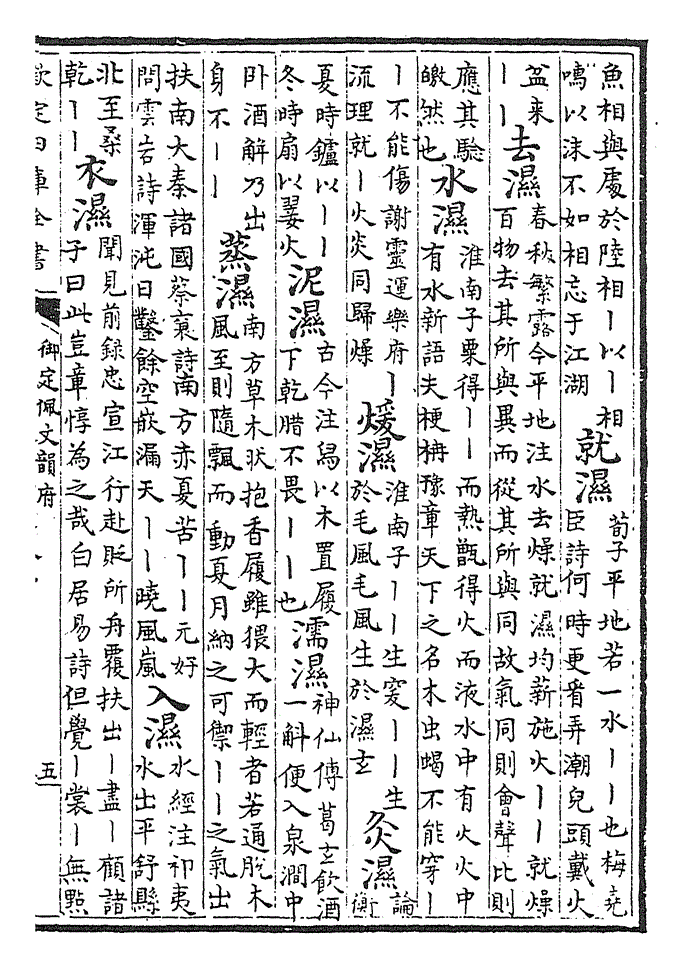 魚相與處於陸相丨以丨相
以沫不如相忘于江湖
就濕
荀子平地若一水丨丨也梅堯
臣詩何時更看弄潮兒頭戴火
盆来
丨丨
去濕
春秋繁露今平地注水去燥就濕均薪施火丨丨就燥
百物去其所與異而從其所與同故氣同則會聲比則
應其驗
皦然也
水濕
淮南子粟得丨丨而熱甑得火而液水中有火火中
有水新語夫梗柟豫章天下之名木虫蝎不能穿丨
丨不能傷謝靈運樂府丨
流理就丨火炎同歸燥
煖濕
淮南子丨丨生窔丨丨生
於毛風毛風生於濕玄
炙濕
論
衡
夏時鑪以丨丨
冬時扇以翣火
泥濕
古今注舄以木置履
下乾腊不畏丨丨也
濡濕
神仙傳葛玄飲酒
一斛便入泉澗中
卧酒解乃出
身不丨丨
蒸濕
南方草木狀抱香履雖猥大而輕者若通脫木
風至則隨飄而動夏月納之可禦丨丨之氣出
扶南大秦諸國蔡襄詩南方赤夏苦丨丨元好
問雲岩詩渾沌日鑿餘空嵌漏天丨丨曉風嵐
入濕
水經注祁夷
水出平舒縣
北至桑
乾丨丨
衣濕
聞見前錄忠宣江行赴貶所舟覆扶出丨盡丨顧諸
子曰此豈章惇為之哉白居易詩但覺丨裳丨無㸃
欽定四庫全書
御定佩文韻府
五